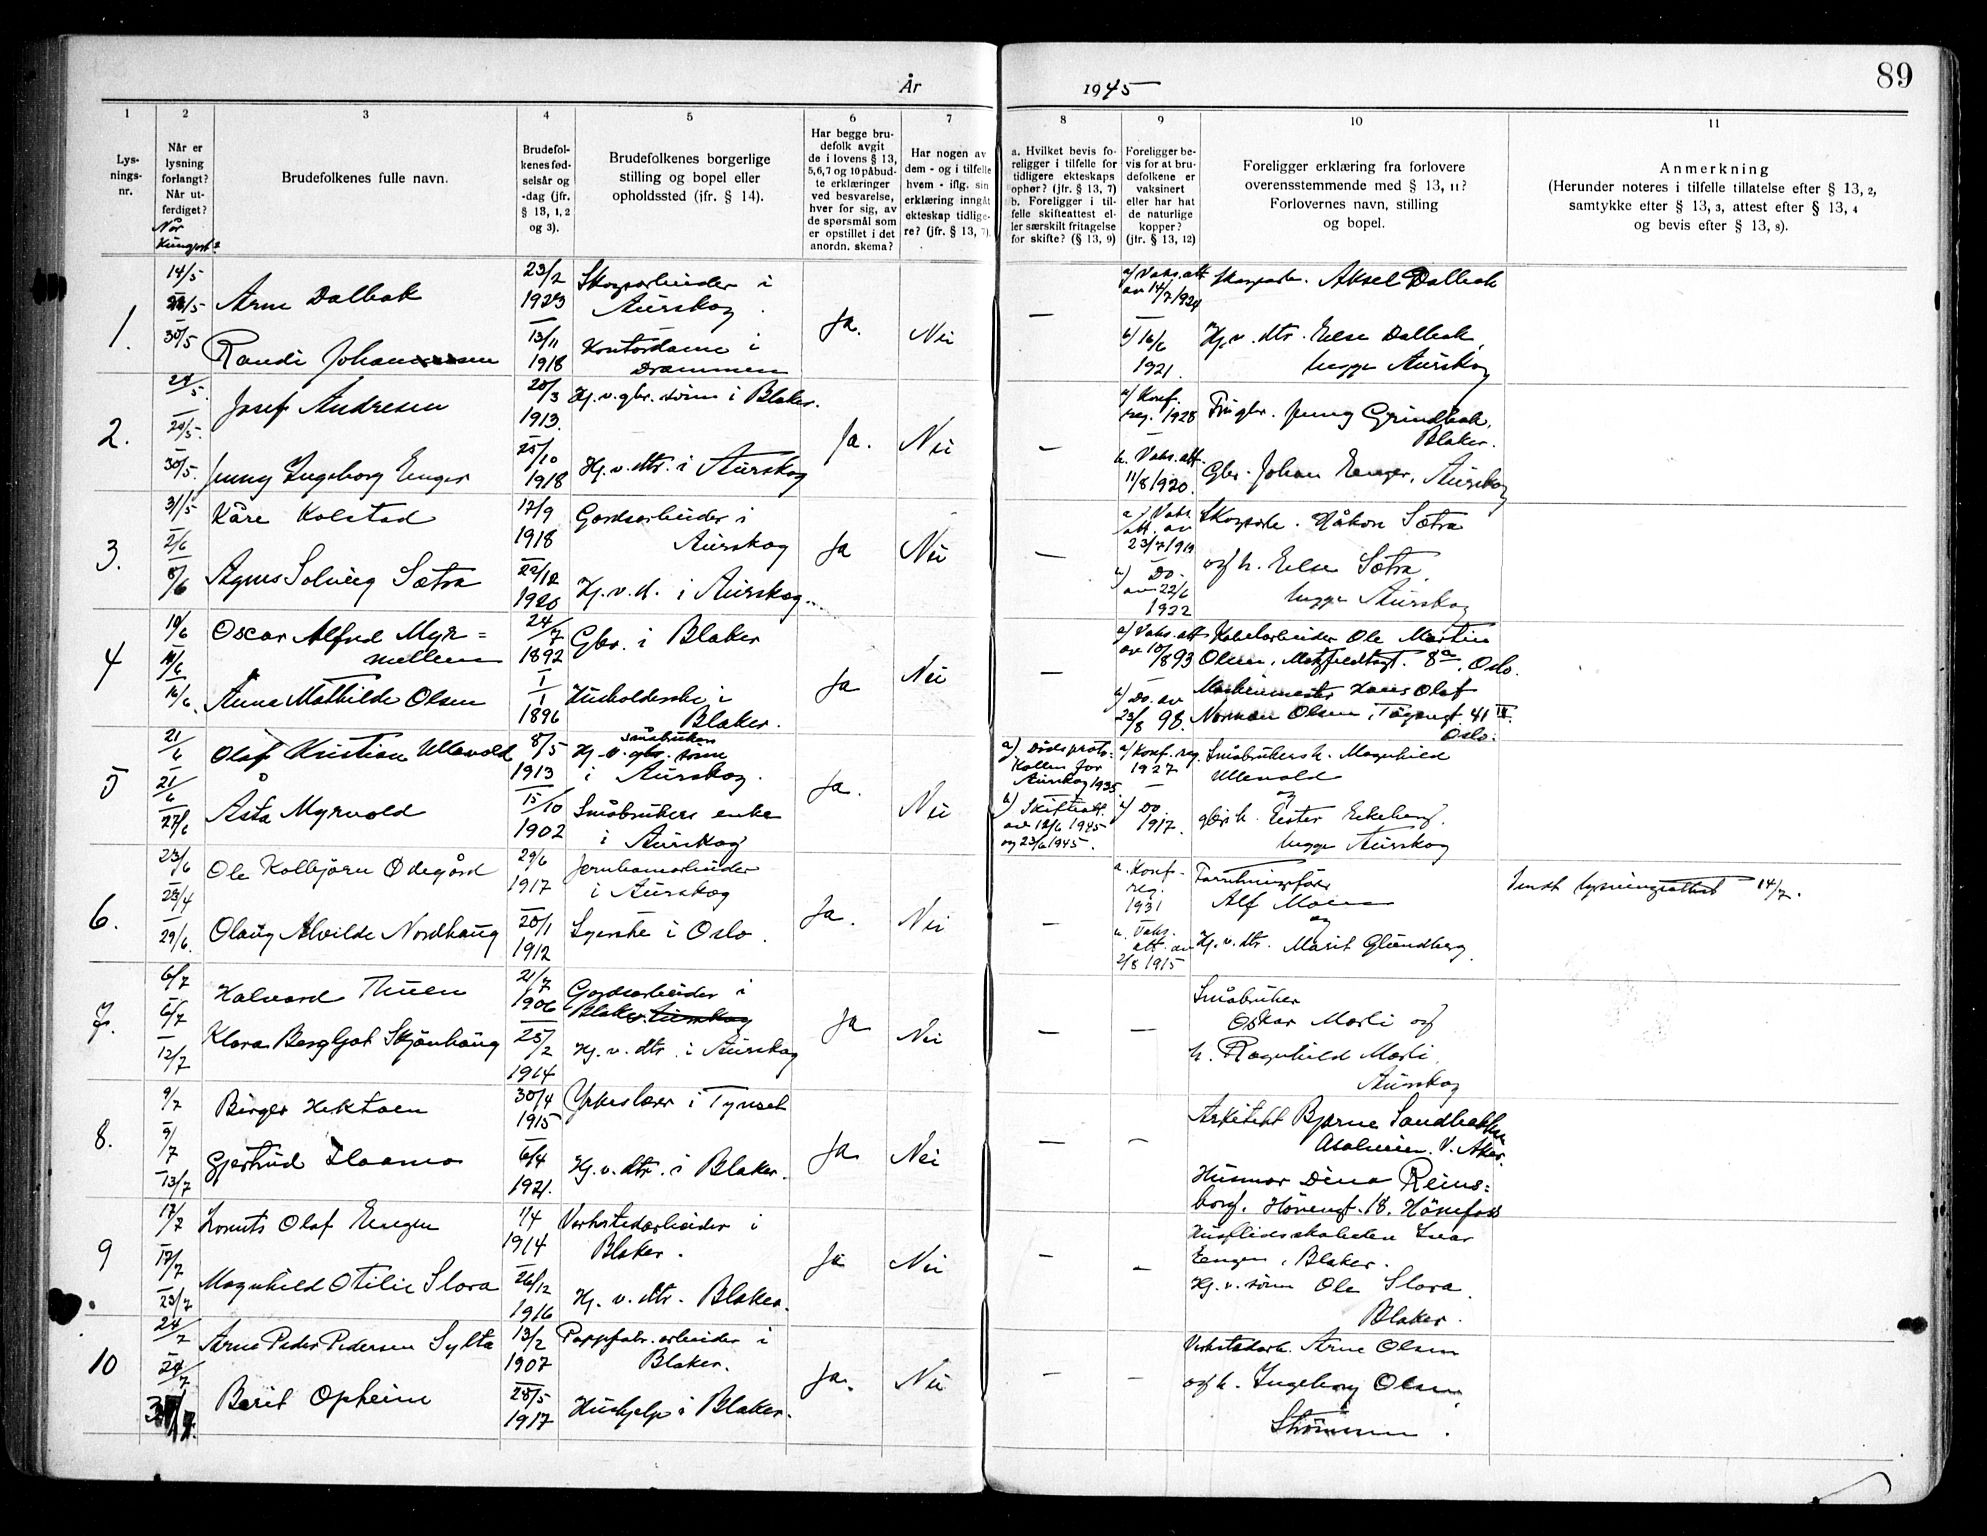 89
År 1945
1 2 3 4 5 6 7 8 9 10 11
Lys-
nings-
nr.
Når er
lysning
forlangt?
Når ut-
ferdiget?
Når
kungjort?
Brudefolkenes fulle navn.
Brudefol-
kenes fød-
selsår og
-dag (jfr.
§ 13, 1, 2
og 3).
Brudefolkenes borgerlige
stilling og bopel eller
opholdssted (jfr. § 14).
Har begge bru-
defolk avgit
de i lovens § 13,
5, 6, 7 og 10 påbud-
te erklæringer
ved besvarelse,
hver for sig, av
de spørsmål som
er opstillet i det
anordn. skema?
Har nogen av
dem - og i tilfelle
hvem - iflg. sin
erklæring inngåt
ekteskap tidlige-
re? (jfr. § 13, 7).
a. Hvilket bevis fo-
religger i tilfelle for
tidligere ekteskaps
ophør? (jfr. § 13, 7)
b. Foreligger i til-
felle skifteattest el-
ler særskilt fritagelse
for skifte? (§ 13, 9)
Foreligger be-
vis for at bru-
defolkene er
vaksinert
eller har hat
de naturlige
kopper?
(jfr. § 13, 12)
Foreligger erklæring fra forlovere
overensstemmende med § 13, 11?
Forlovernes navn, stilling
og bopel.
Anmerkning
(Herunder noteres i tilfelle tillatelse efter § 13, 2,
samtykke efter § 13, 3, attest efter § 13, 4
og bevis efter § 13, 8).
1.
14/5
30/5
Arne Dalbak
Randi Johan
23/2
1923
13/11
1918
Skogsarbeider i
Aurskog.
Kontordame i
Drammen
Ja.
Nei
—
a) Vaks.att
av 14/7 1924
b) 16/6
1921.
Skogsarb. Aksel Dalbak
Hj.v. dtr. Else Dalbak,
begge Aurskog
2.
30/5.
Josef Andresen
Jenny Ingeborg Enger
20/3
1913.
25/10
1918
Hj.v.gbr. sønn i Blaker.
Hj.v. dtr. i Aurskog
Ja.
Nei
—
a) Konf.
reg. 1928
b. Vaks.att.
11/8 1920.
gbr. Jenny Grindbak,
Blaker.
Gbr. Johan Enger, Aurskog
3.
31/5
2/6
8/6
Kåre Kolstad
Agnes Solveig Sætra
17/9
1918
22/12
1920
Gårdsarbeider i
Aurskog
Hj.v.d. i Aurskog.
Ja
Nei
—
a) Vaks
att. av
23/7 1919
b) Do.
av 22/6
1922
Skogsarb. Håkon Sætra
og h. Else Sætra
begge Aurskog
4
16/6.
Oscar Alfred Myr=
mellem
Anna Mathilde Olsen
24/7
1892
1/1
1896
Gbr. i Blaker
Husholderske i
Blaker.
Ja
Nei
—
a) Vaks.att
av 10/8 93
b) Do. av
23/8 98.
Kabelarbeider Ole Martin
Olsen, 8a, Oslo.
Maskinmester Hans Olaf
Norman Olsen, 41 III.
Oslo.
5
21/6
21/6
27/6
Olaf Kristian Ullevold
Åsta Myrvold
8/5
1913
15/10
1902
småbruker
Hj.v. gbr. sønn
i Aurskog.
Småbrukers enke
i Aurskog
Ja.
Nei
a) Dødsproto-
kollen for
Aurskog 1935.
b) Skifteatt.
av 12/6 1945
og 23/6 1945.
a) Konf. reg.
1927
b) Do
1917.
Småbrukers h. Magnhild
Ullevold
og
gbr.h. Ester Eikeberg.
begge Aurskog
6.
23/6
29/6.
Ole Kolbjørn Ødegård
Olaug Alvilde Nordhaug
29/6
1917
20/1
1912
Jernbanearbeider
i Aurskog
Syerske i Oslo.
Ja.
Nei
—
a. Konf-
reg.
1931
b. Vaks.
att. av
2/8 1915
Forretningsfører
Alf Moen
og
Hj.v. dtr. Marit Glundberg.
Sendt lysningsattest 14/7.
7.
6/7
6/7
12/7
Halvard Thuen
Klara Bergljot Skjønhaug
21/7
1906
25/2
1914
Gårdsarbeider i
Blaker Aurskog
Hj.v. dtr. i Aurskog
Ja
Nei
—
—
Småbruker
Oskar Mørli og
h. Ragnhild Mørli
Aurskog
8.
9/7
9/7
13/7
Birger Hektoen
Gjertrud Ilaamo
30/4
1915
6/4
1921.
Yrkeslærer i Tynset
Hj.v. dtr. i Blaker.
Ja
Nei
—
—
Arkitekt Bjarne Sandbakken
V. Aker.
Husmor Dina Reins=
borg. Hønengt. 18. Hønefoss
9
17/7
17/7
23/7
Lorents Olaf Engen
Magnhild Otilie Slora
1/4
1914
26/12
1916
Verkstedarbeider i
Blaker.
Hj.v. dtr. Blaker.
Ja
Nei
—
—
Ivar
Engen, Blaker.
Hj.v. sønn Ole Slora
Blaker.
10
24/7
24/7
Arne Peder Pedersen Sylta
Berit Opheim
13/2
1907
28/5
1917
Pappfabr. arbeider i
Blaker.
Hushjelp i Blaker.
Ja.
Nei
—
—
Verkstedarb. Arne Olsen
og h. Ingeborg Olsen,
Strømmen.